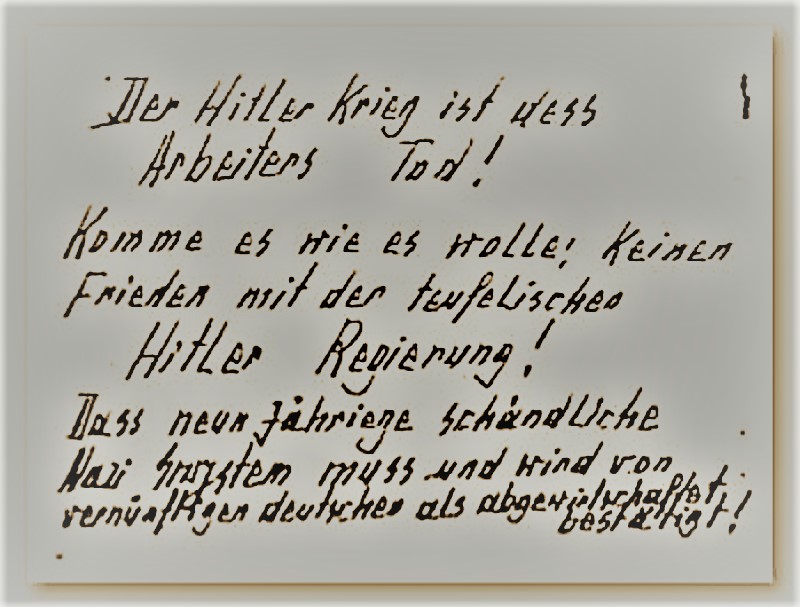 Der Hitler Krieg ist dess
Arbeiters Tod!
Komme es wie es wolle; Keinen
Frieden mit der teufelischen
Hitler Regierung!
Dass neun Jähriege schändliche
Nazi muss und wird von
vernünftigen deutschen als abgewirtschaftet
bestätigt!